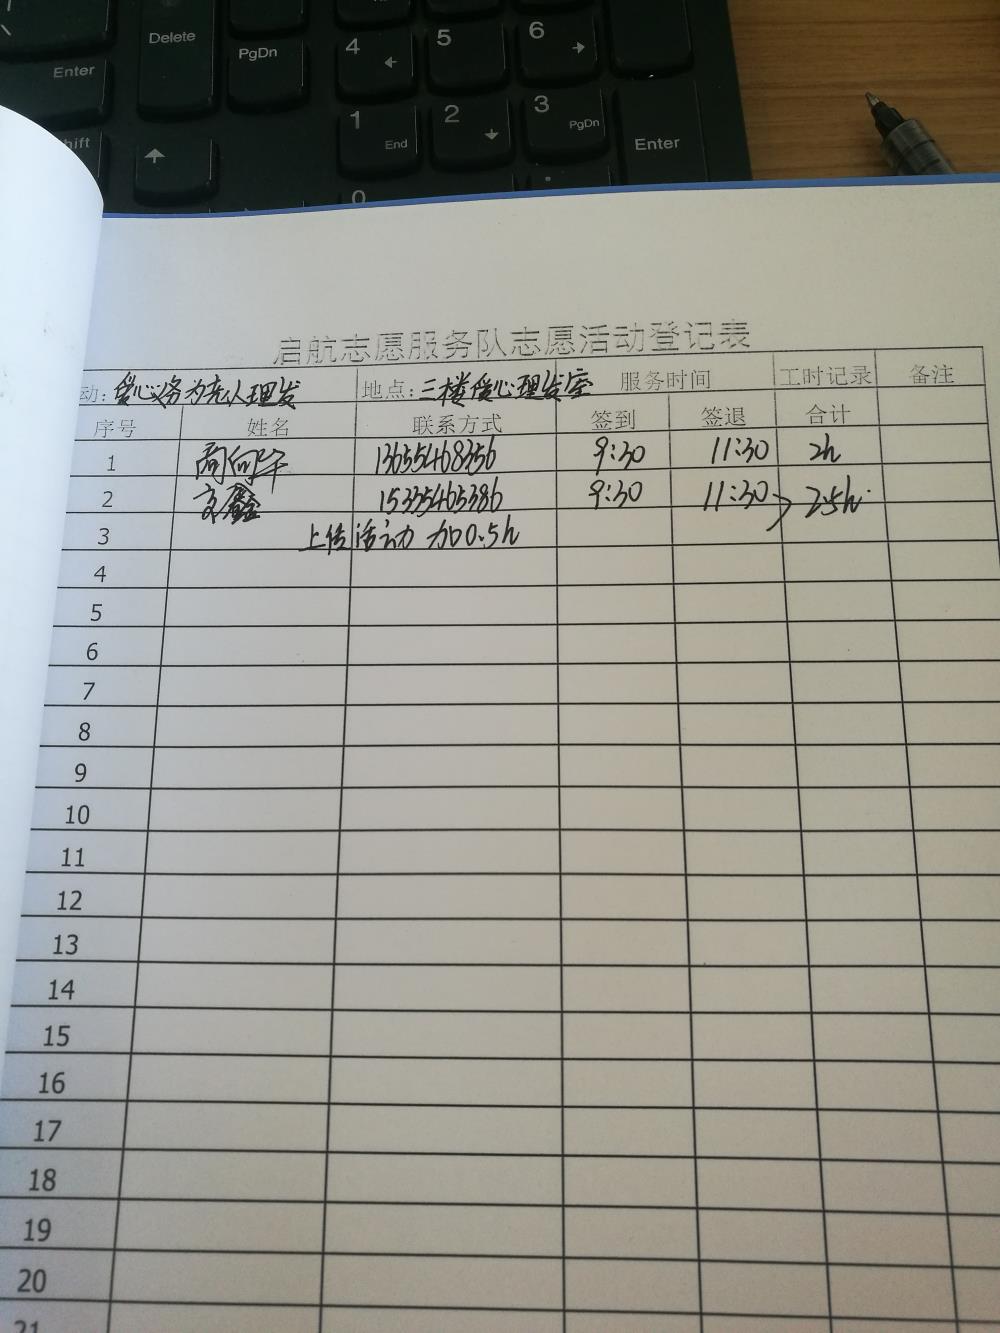 Delete
PgDn
4
5
6
Enter
1
End
2
3
PgDn
Enter
hift
0
启航志愿服务队志愿活动登记表
动: 地点: 三楼爱心理发室 服务时间 工时记录 备注
序号 姓名 联系方式 签到 签退 合计
1 13655468356 9:30 11:30 2h
2 15335465386 9:30 11:30 2.5h
3 上传活动 加0.5h
4
5
6
7
8
9
10
11
12
13
14
15
16
17
18
19
20
21